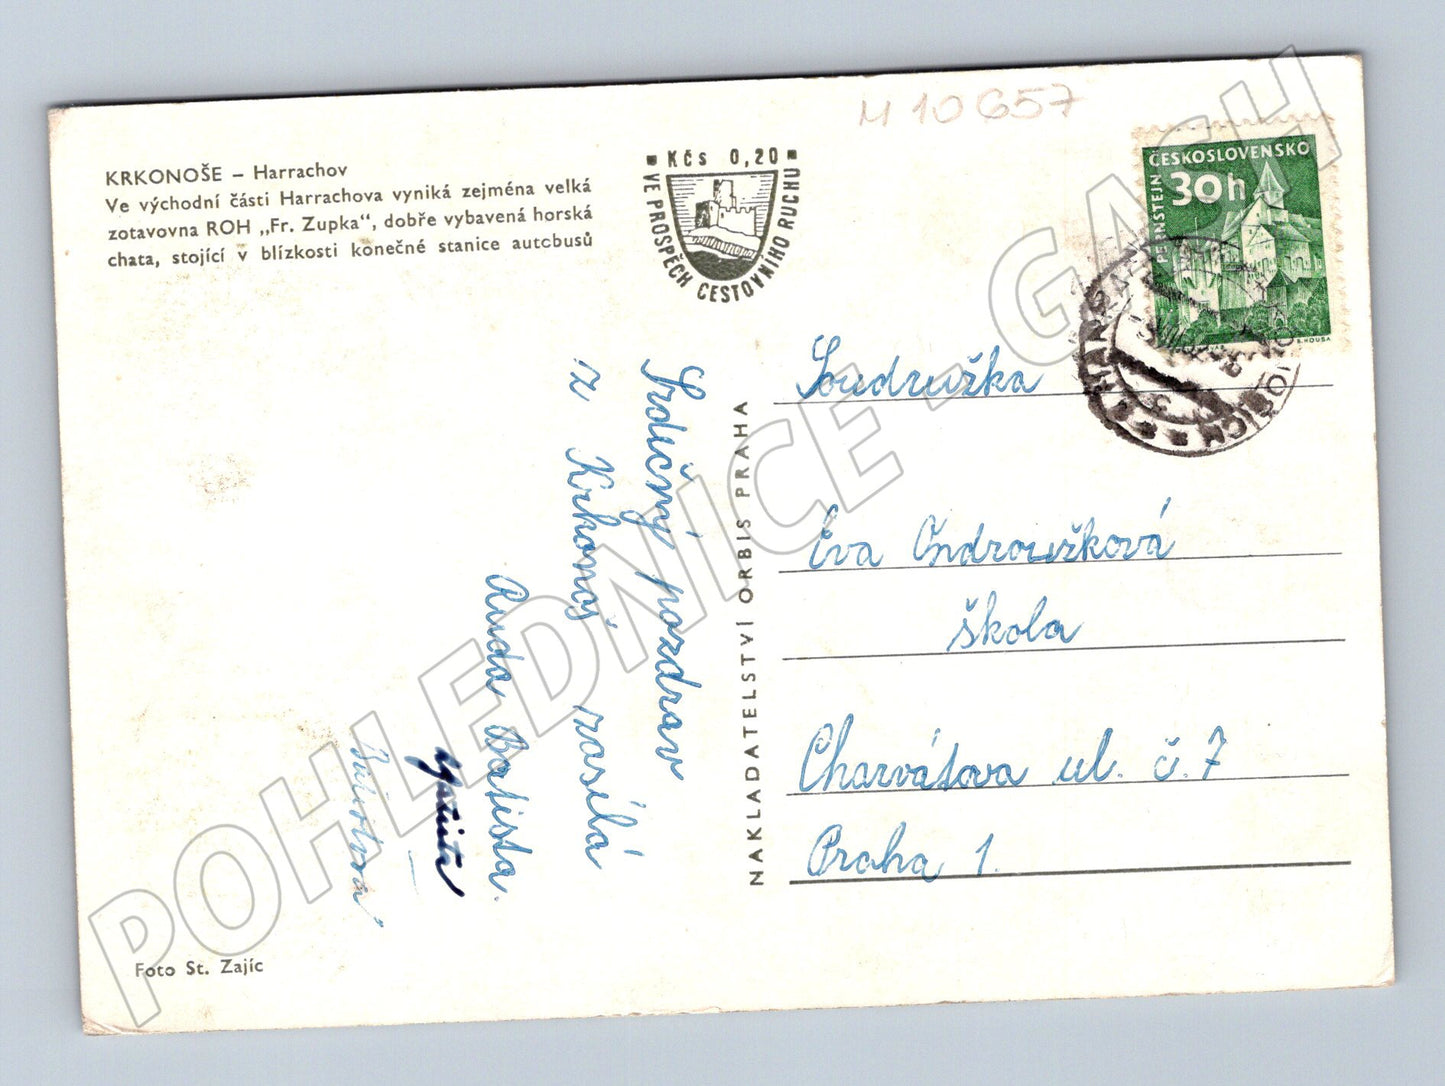 M 10657
KRKONOŠE – Harrachov
Ve východní části Harrachova vyniká zejména velká
zotavovna ROH „Fr. Zupka“, dobře vybavená horská
chata, stojící v blízkosti konečné stanice autobusů
KČS 0,20
VE PROSPĚCH CESTOVNÍHO RUCHU
ČESKOSLOVENSKO
30h
PERNŠTEJN
Srdečný pozdrav
z Krkonoš zasílá
Ruda Batista.
NAKLADATELSTVÍ ORBIS PRAHA
Soudružka
Eva Ondroužková
škola
Charvátova ul. č. 7
Praha 1.
Foto St. Zajíc
POHLEDNICE - GACH